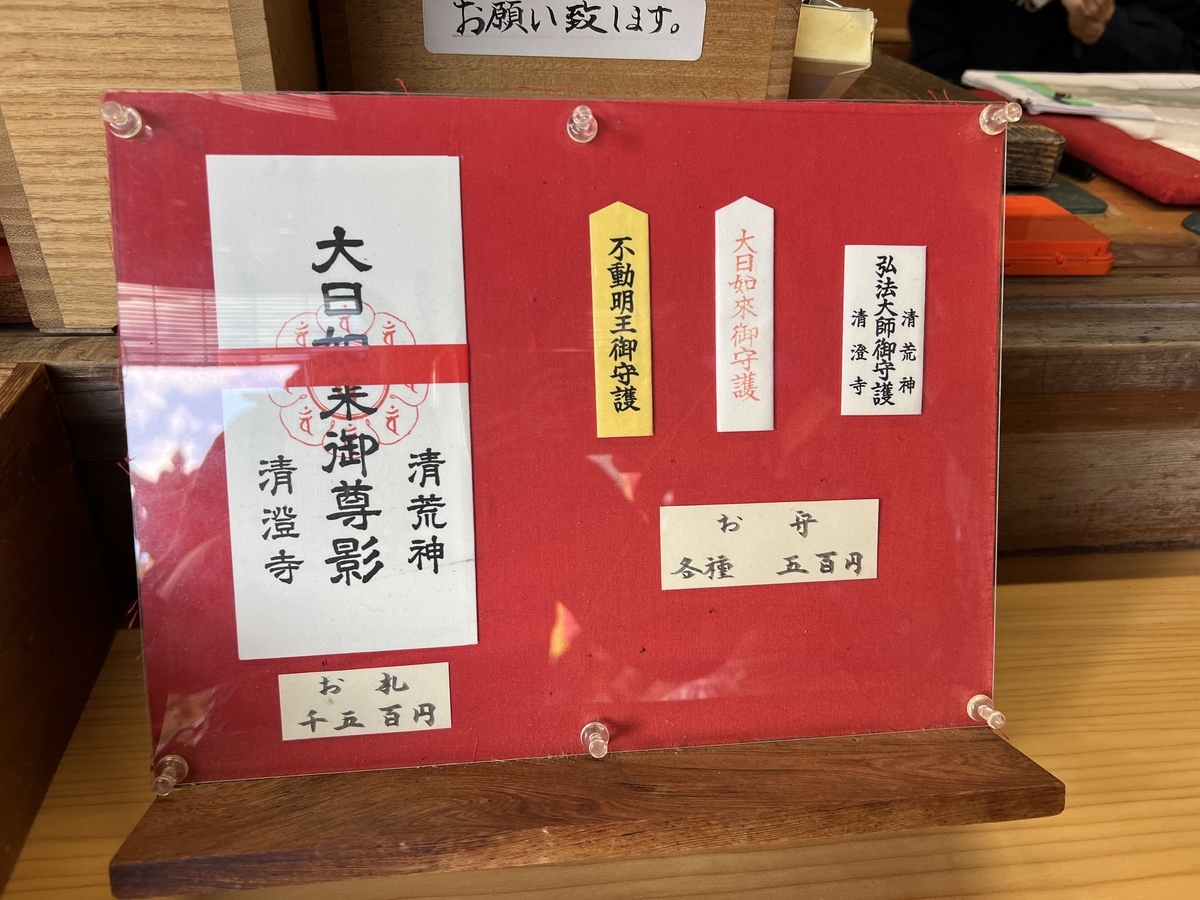 お願い致します。
大日如来御尊影
清荒神
清澄寺
お札
千五百円
不動明王御守護
大日如來御守護
清荒神
弘法大師御守護
清澄寺
お守
各種 五百円